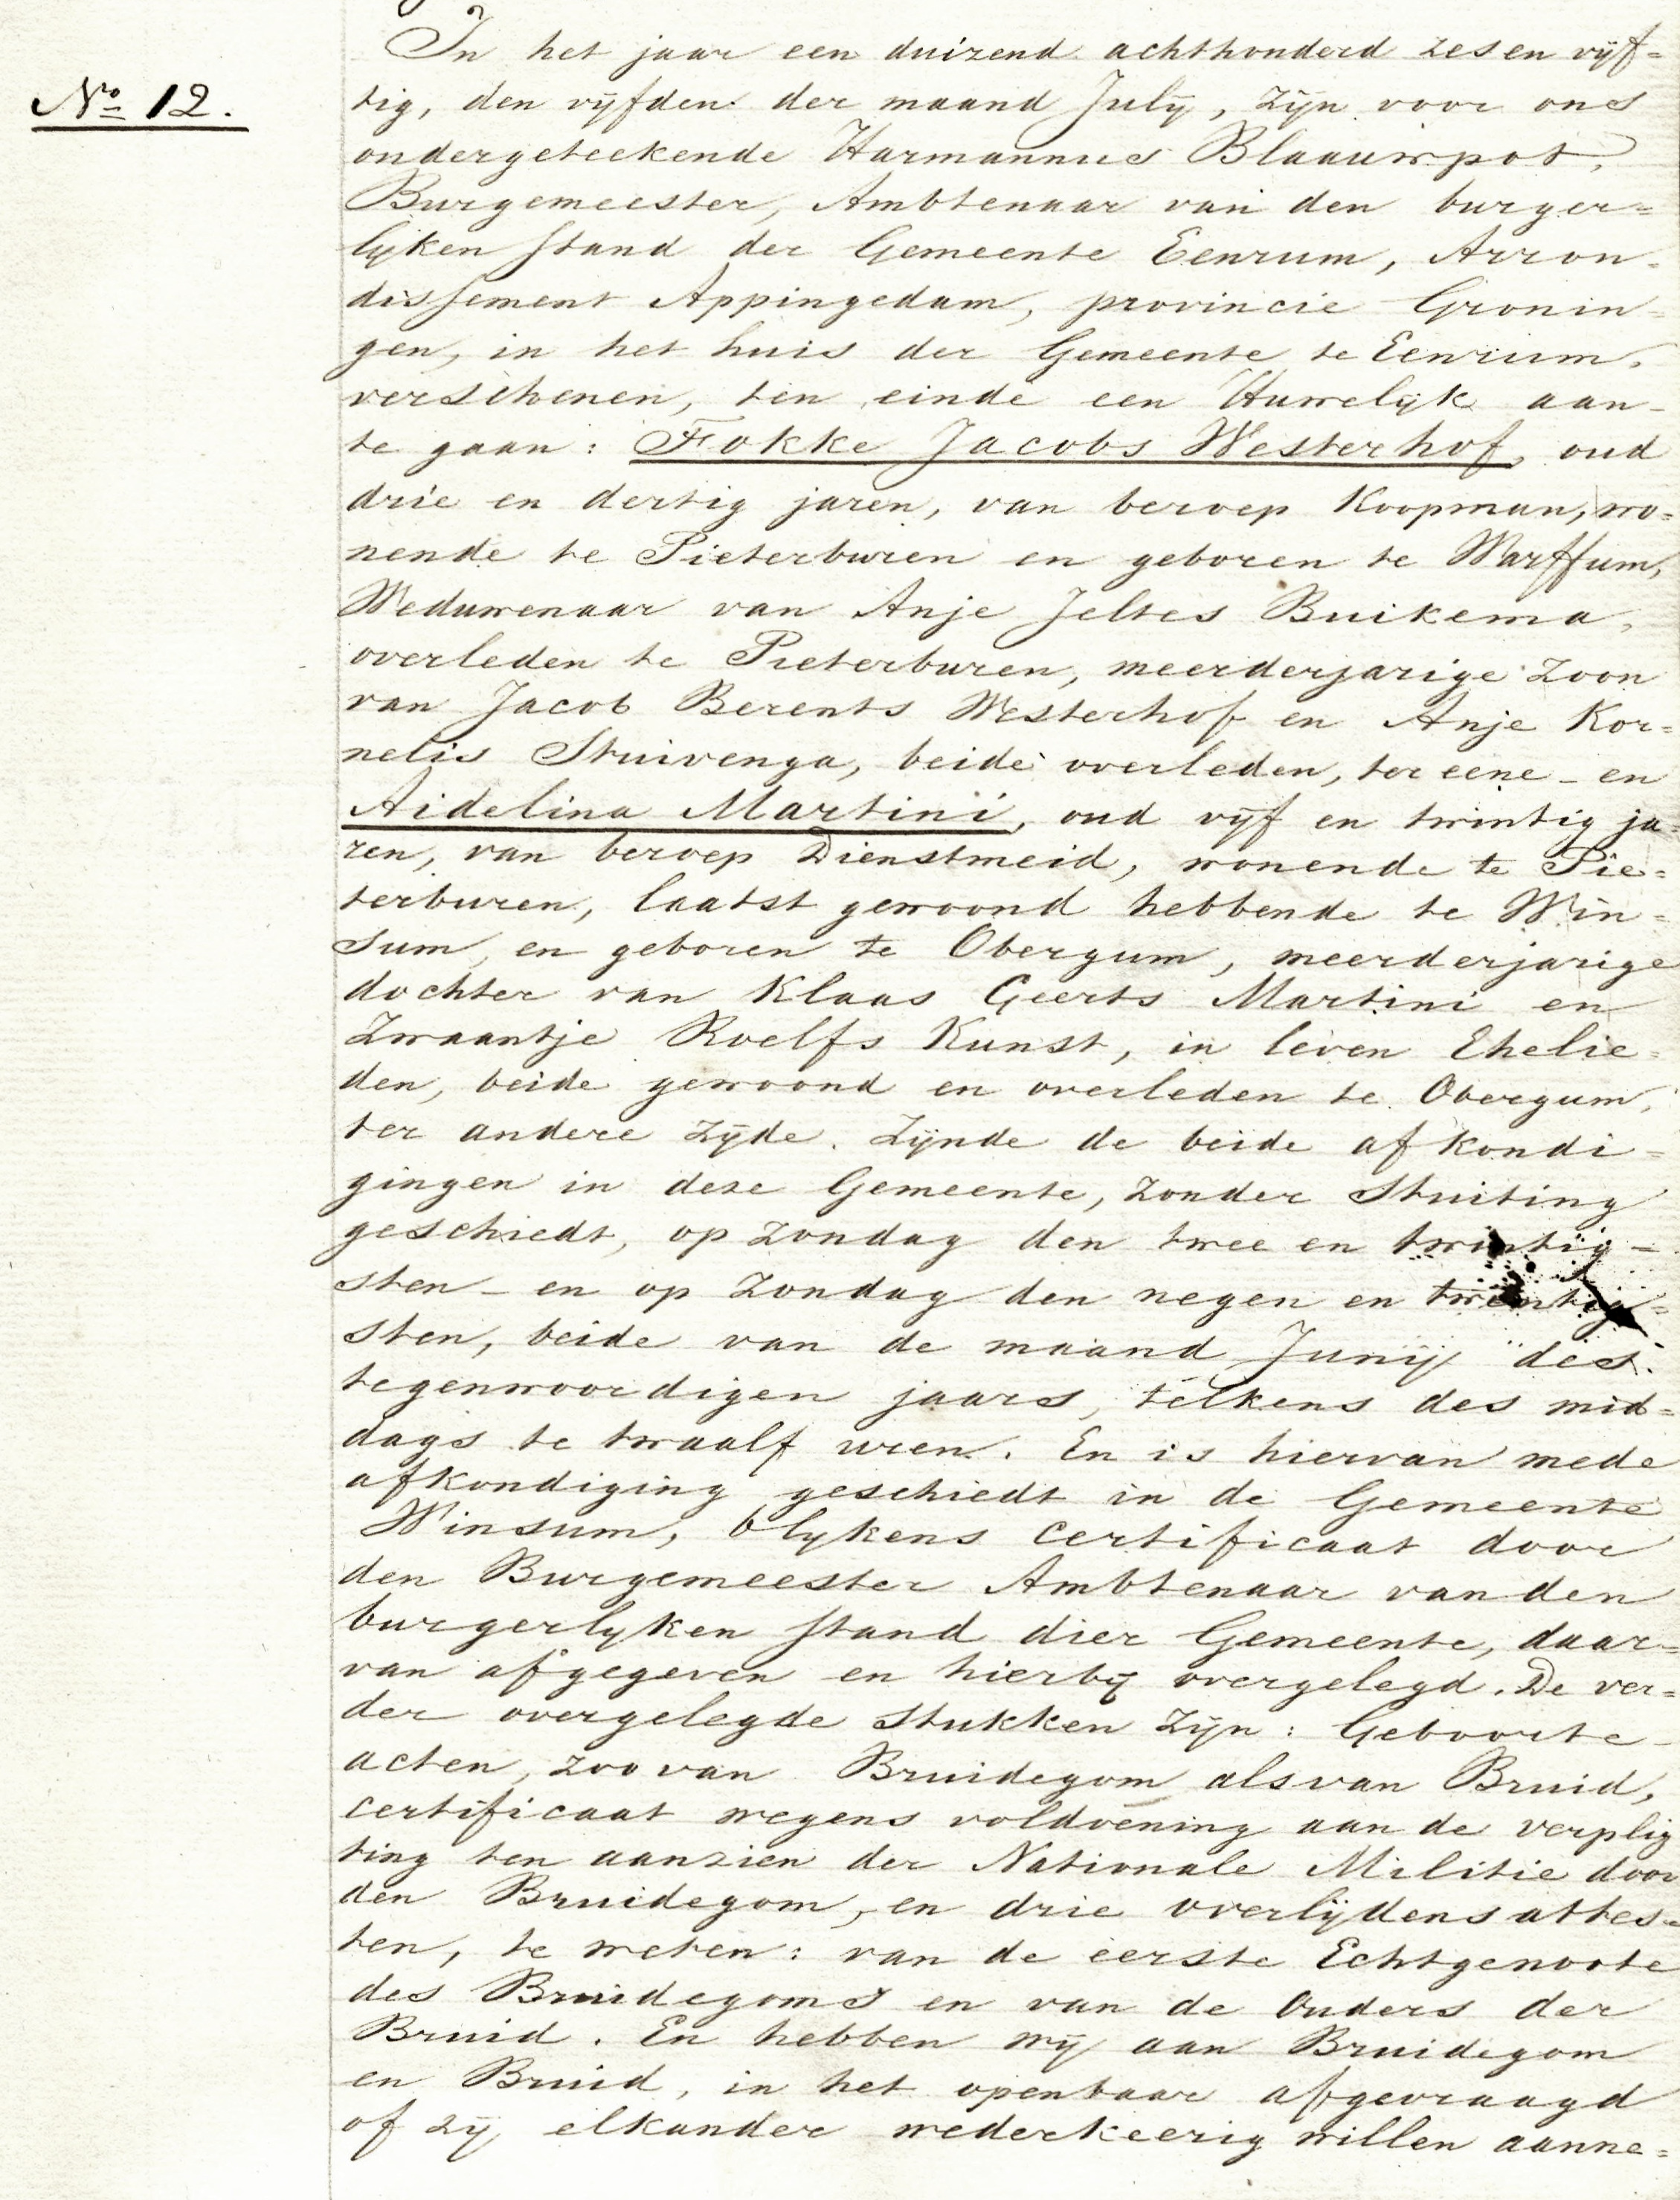 In het jaar een duizend achthonderd zes en vijf=
No 12.
tig, den vijfden der maand July, zijn voor ons
ondergeteekende Harmannus Blaauwpot,
Burgemeester, Ambtenaar van den burger=
lijken stand der Gemeente Eenrum, Arron-
dissement Appingedam, provincie Gronin-
gen, in het huis der Gemeente te Eenrum,
verschenen, ten einde een Huwelijk aan-
te gaan: Fokke Jacobs Westerhof, oud
drie en dertig jaren, van beroep Koopman, wo=
nende te Pieterburen en geboren te Warffum,
Weduwenaar van Anje Jeltes Buikema,
overleden te Pieterburen, meerderjarige Zoon
van Jacob Berents Westerhof en Anje Kor=
nelis Stuivenga, beide overleden, ter eene - en
Aidelina Martini, oud vijf en twintig ja-
ren, van beroep Dienstmeid, wonende te Pie=
terburen, laatst gewoond hebbende te Win=
sum, en geboren te Obergum, meerderjarige
dochter van Klaas Geerts Martini en
Zwaantje Roelfs Kunst, in leven Ehelie=
den, beide gewoond en overleden te Obergum,
ter andere zijde. Zijnde de beide afkondi=
gingen in deze Gemeente, zonder Stuiting
geschiedt, op Zondag den twee en twintig=
sten - en op Zondag den negen en twintig=
sten, beide van de maand Junij des
tegenwoordigen jaars, telkens des mid=
dags te twaalf uren. En is hiervan mede
afkondiging geschiedt in de Gemeente
Winsum, blijkens certificaat door
den Burgemeester Ambtenaar van den
burgerlyken stand dier Gemeente, daar=
van afgegeven en hierbij overgelegd. De ver=
der overgelegde Stukken Zijn: Geboorte-
acten, zoo van Bruidegom als van Bruid,
certificaat wegens voldoening aan de verplig
ting ten aanzien der Nationale Militie door
den Bruidegom, en drie overlijdensattes=
ten, te weten: van de eerste Echtgenoote
des Bruidegoms en van de Ouders der
Bruid. En hebben wij aan Bruidegom
en Bruid, in het openbaar afgevraagd
of zij elkander wederkeerig willen aanne=